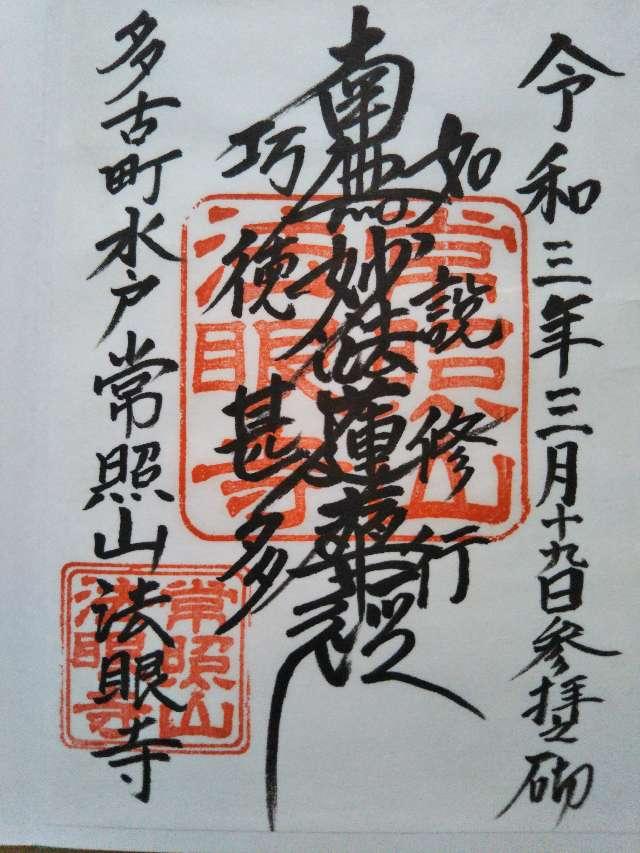 令和三年三月十九日参拝之砌
如説修行
南無妙法蓮華経
功徳甚多
多古町水戸常照山法眼寺
常照山
法眼寺
常照山
法眼寺